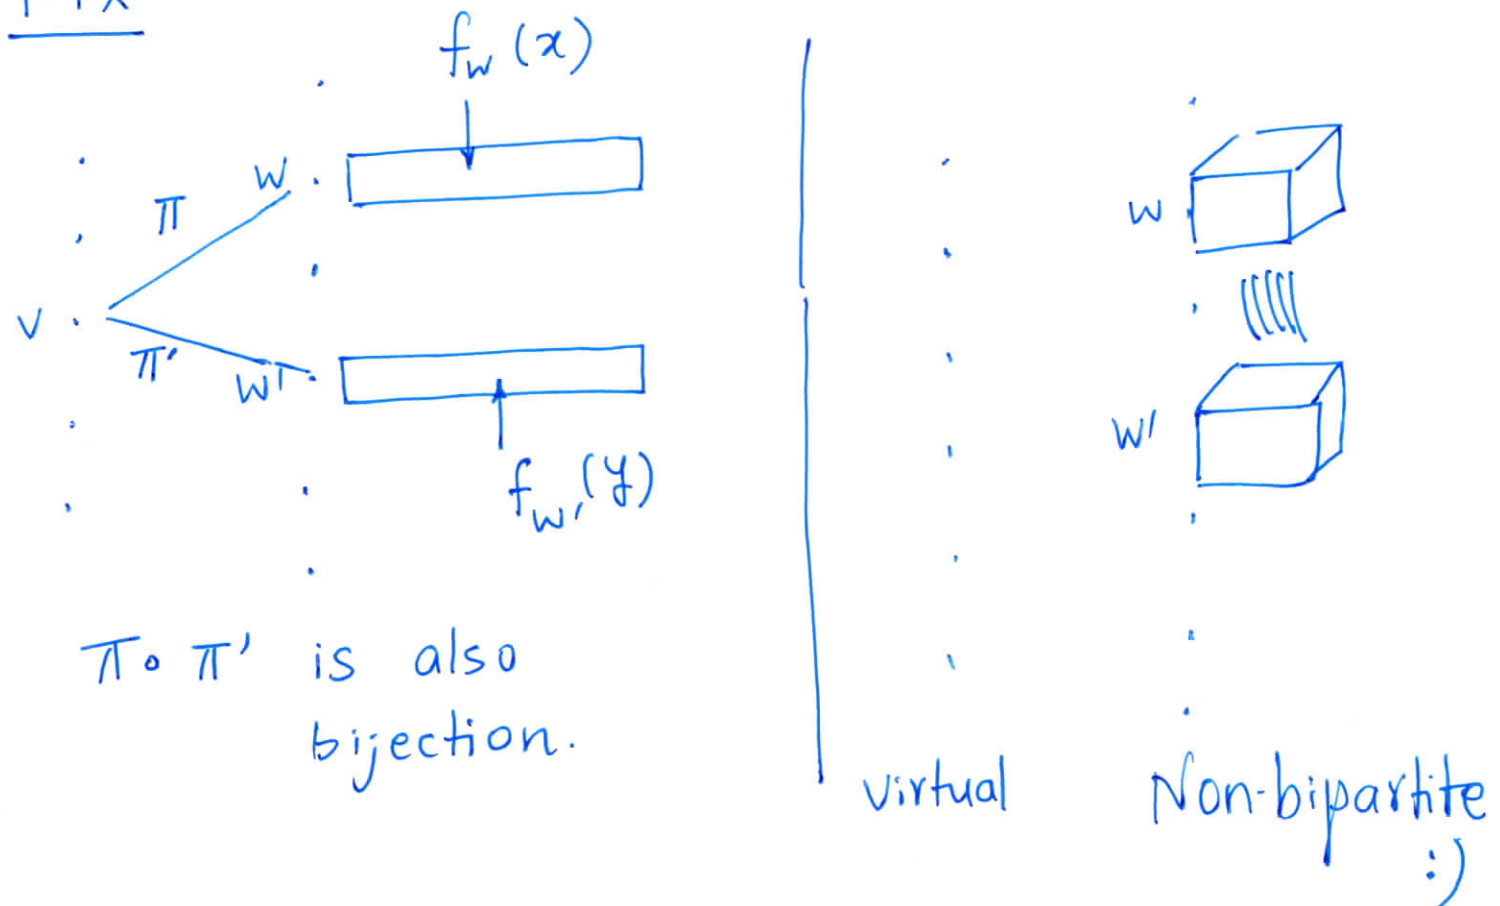 f_w (x)
w
π
v
π'
w'
f_w' (y)
π∘π' is also
bijection.
w
w'
virtual
Non-bipartite
:)